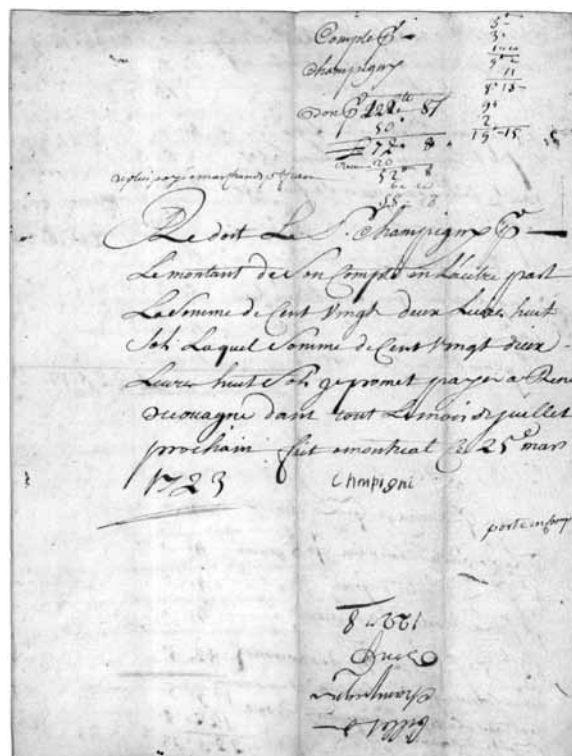 Compte Pr
Champigny
Don Pr 122tt 8s
50
72 8
20
52 8
5
3
9
11
8 15
9
2
19 15
Redoit Le Sr. Champigny Pr
Le montant de Son Compte en L'autre part
La Somme de Cent Vingt deux Livres huit
Sols Laquel Somme de Cent Vingt deux
Livres huit Sols je promet payer a Rene
decouagne dans tout Le mois de juillet
prochain fait a montreal Ce 25e mars
1723 Chmpigni
porté en
122tt 8
Due
Champigny
Billet